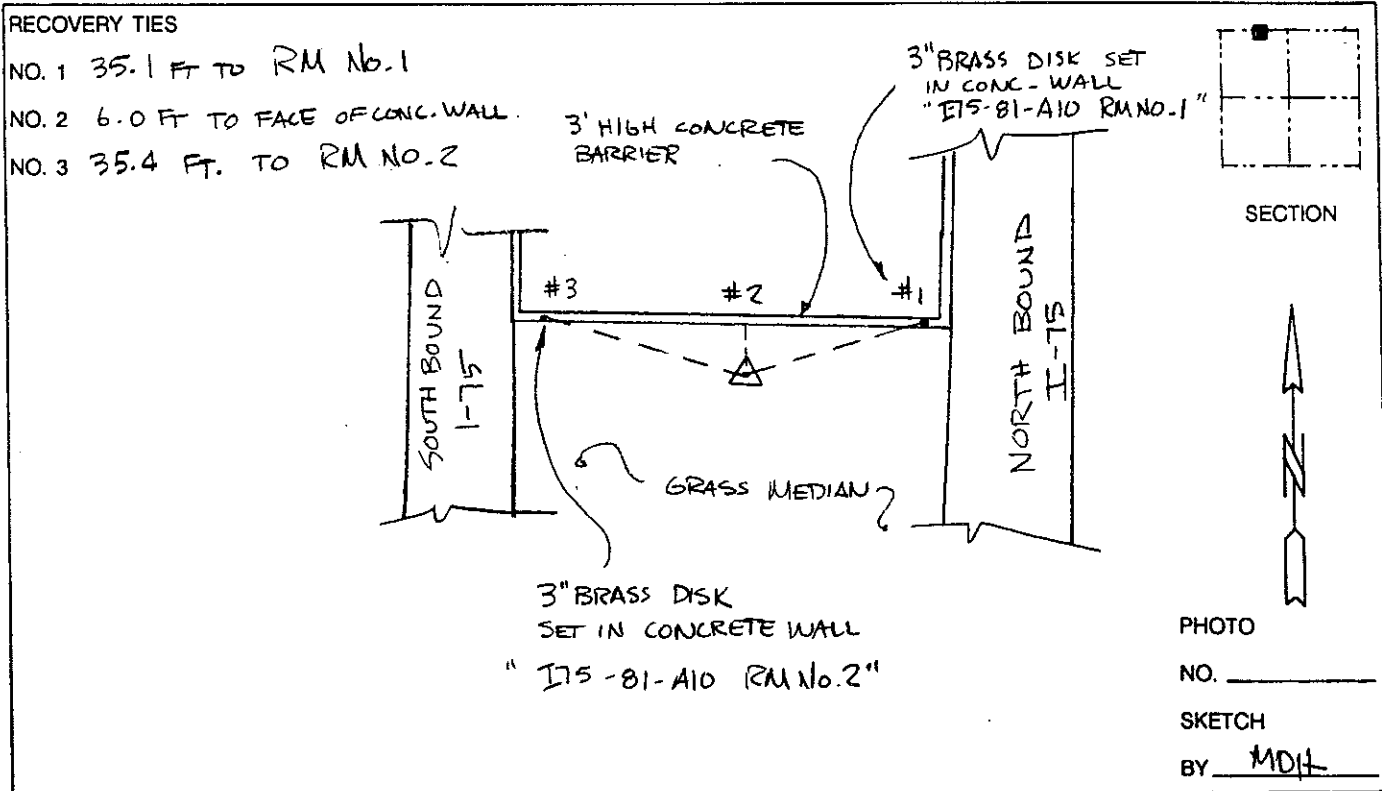 RECOVERY TIES
NO. 1 35.1 FT TO RM No.1
NO. 2 6.0 FT TO FACE OF CONC. WALL.
NO. 3 35.4 FT. TO RM NO.2
3' HIGH CONCRETE
BARRIER
3" BRASS DISK SET
IN CONC. WALL
"I75-81-A10 RM NO.1"
SECTION
#3
#2
#1
SOUTH BOUND
I-75
NORTH BOUND
I-75
GRASS MEDIAN
N
3" BRASS DISK
SET IN CONCRETE WALL
"I75-81-A10 RM No.2"
PHOTO
NO.
SKETCH
BY MDH